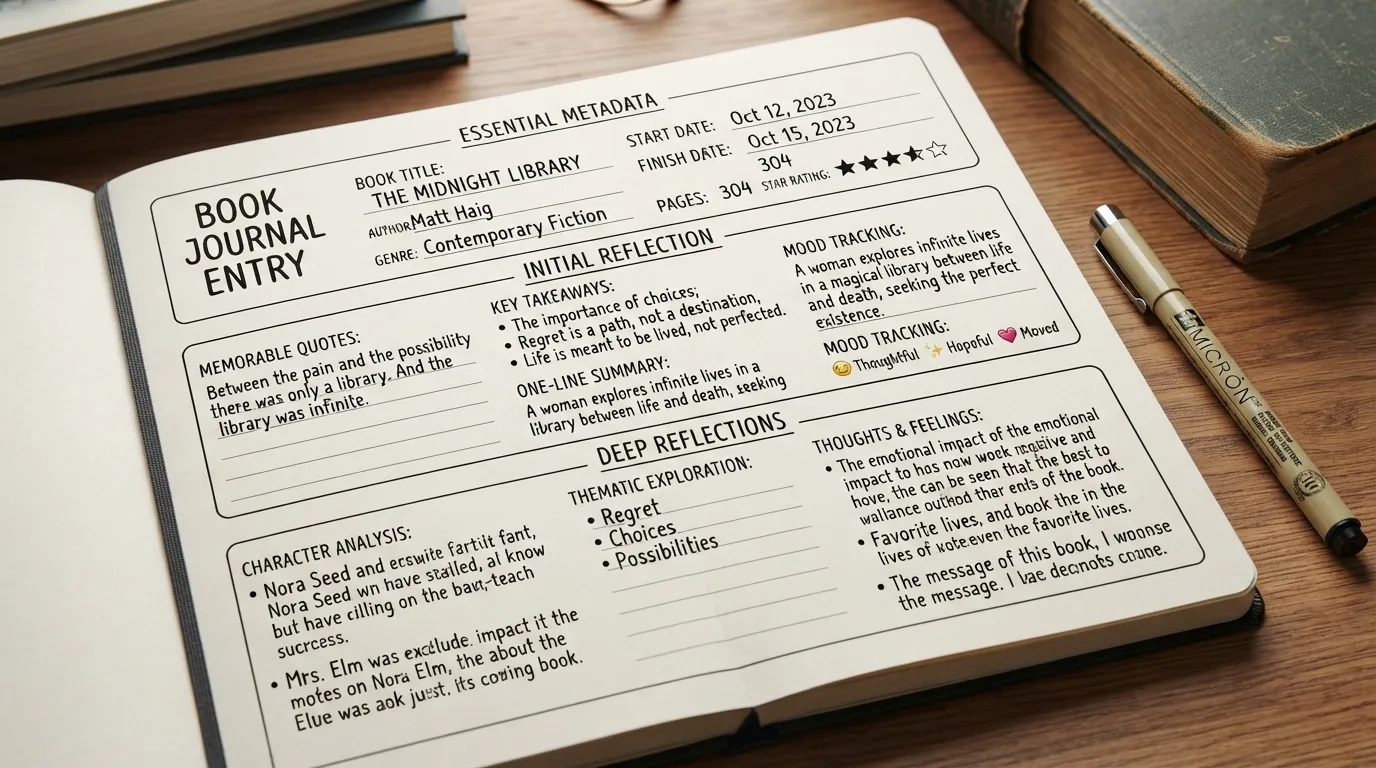 ESSENTIAL METADATA
BOOK
JOURNAL
ENTRY
BOOK TITLE:
THE MIDNIGHT LIBRARY
AUTHOR Matt Haig
GENRE: Contemporary Fiction
START DATE: Oct 12, 2023
FINISH DATE: Oct 15, 2023
304
PAGES: 304 STAR RATING:
INITIAL REFLECTION
MEMORABLE QUOTES:
Between the pain and the possibility
there was only a library. And the
library was infinite.
KEY TAKEAWAYS:
• The importance of choices;
• Regret is a path, not a destination,
• Life is meant to be lived, not perfected.
ONE-LINE SUMMARY:
A woman explores infinite lives in a
library between life and death, seeking
MOOD TRACKING:
A woman explores infinite lives
in a magical library between life
and death, seeking the perfect
existence.
MOOD TRACKING:
Thoughtful Hopeful Moved
DEEP REFLECTIONS
CHARACTER ANALYSIS:
• Nora Seed and fant,
Nora Seed wn have al know
but have cilling on the
success.
• Mrs. Elm was impact it the
motes on Nora Elm, the about the
Elue was aok just. its book.
THEMATIC EXPLORATION:
• Regret
• Choices
• Possibilities
THOUGHTS & FEELINGS:
• The emotional impact of the emotional
impact to has now week and
hove, the can be seen that the best to
ends of the book.
• Favorite lives, and book the in the
lives of the favorite lives.
• The message of this book, I
the message. I
MICRON